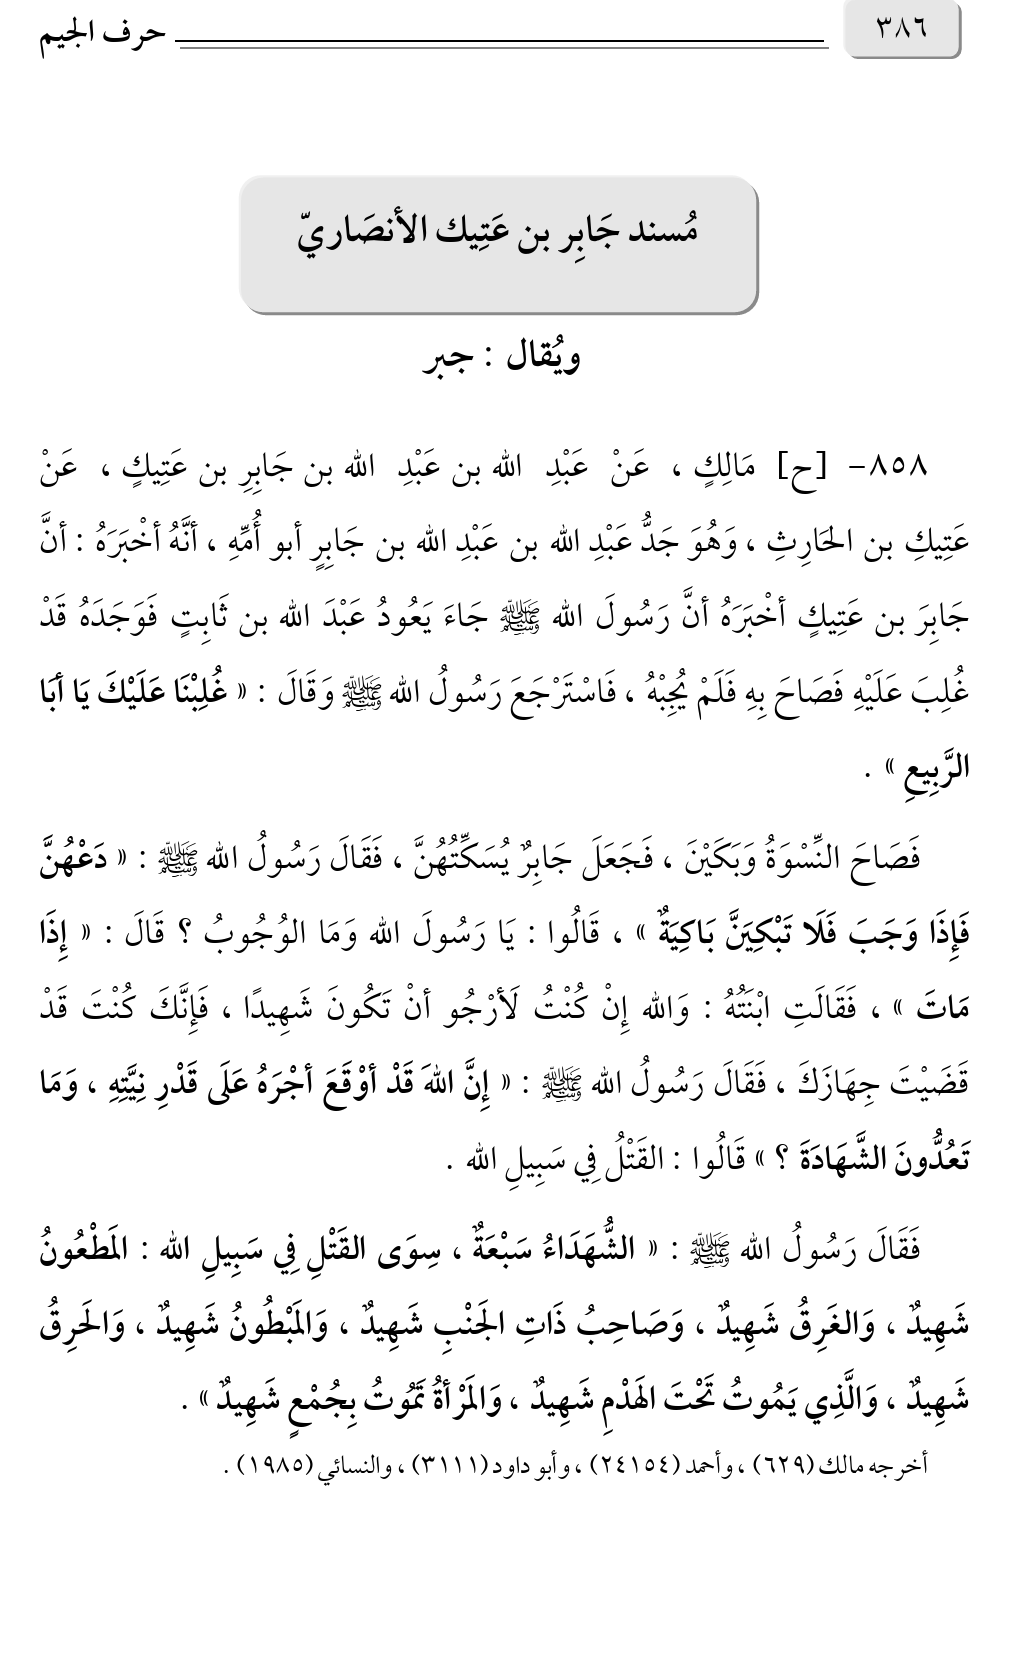 ٣٨٦
حرف الجيم
مُسند جَابِر بن عَتِيك الأنصَاريّ
ويُقال : جبر
٨٥٨- [ح] مَالِكٍ ، عَنْ عَبْدِ الله بن عَبْدِ الله بن جَابِرِ بن عَتِيكٍ ، عَنْ
عَتِيكِ بن الحَارِثِ ، وَهُوَ جَدُّ عَبْدِ الله بن عَبْدِ الله بن جَابِرٍ أبو أُمِّهِ ، أنَّهُ أخْبَرَهُ : أنَّ
جَابِرَ بن عَتِيكٍ أخْبَرَهُ أنَّ رَسُولَ الله ﷺ جَاءَ يَعُودُ عَبْدَ الله بن ثَابِتٍ فَوَجَدَهُ قَدْ
غُلِبَ عَلَيْهِ فَصَاحَ بِهِ فَلَمْ يُجِبْهُ ، فَاسْتَرْجَعَ رَسُولُ الله ﷺ وَقَالَ : « غُلِبْنَا عَلَيْكَ يَا أبَا
الرَّبِيعِ » .
فَصَاحَ النِّسْوَةُ وَبَكَيْنَ ، فَجَعَلَ جَابِرٌ يُسَكِّتُهُنَّ ، فَقَالَ رَسُولُ الله ﷺ : « دَعْهُنَّ
فَإِذَا وَجَبَ فَلَا تَبْكِيَنَّ بَاكِيَةٌ » ، قَالُوا : يَا رَسُولَ الله وَمَا الوُجُوبُ ؟ قَالَ : « إِذَا
مَاتَ » ، فَقَالَتِ ابْنَتُهُ : وَالله إِنْ كُنْتُ لَأرْجُو أنْ تَكُونَ شَهِيدًا ، فَإِنَّكَ كُنْتَ قَدْ
قَضَيْتَ جِهَازَكَ ، فَقَالَ رَسُولُ الله ﷺ : « إِنَّ اللهَ قَدْ أوْقَعَ أجْرَهُ عَلَى قَدْرِ نِيَّتِهِ ، وَمَا
تَعُدُّونَ الشَّهَادَةَ ؟ » قَالُوا : القَتْلُ فِي سَبِيلِ الله .
فَقَالَ رَسُولُ الله ﷺ : « الشُّهَدَاءُ سَبْعَةٌ ، سِوَى القَتْلِ فِي سَبِيلِ الله : المَطْعُونُ
شَهِيدٌ ، وَالغَرِقُ شَهِيدٌ ، وَصَاحِبُ ذَاتِ الجَنْبِ شَهِيدٌ ، وَالمَبْطُونُ شَهِيدٌ ، وَالحَرِقُ
شَهِيدٌ ، وَالَّذِي يَمُوتُ تَحْتَ الهَدْمِ شَهِيدٌ ، وَالمَرْأةُ تَمُوتُ بِجُمْعٍ شَهِيدٌ » .
أخرجه مالك (٦٢٩) ، وأحمد (٢٤١٥٤) ، وأبو داود (٣١١١) ، والنسائي (١٩٨٥) .